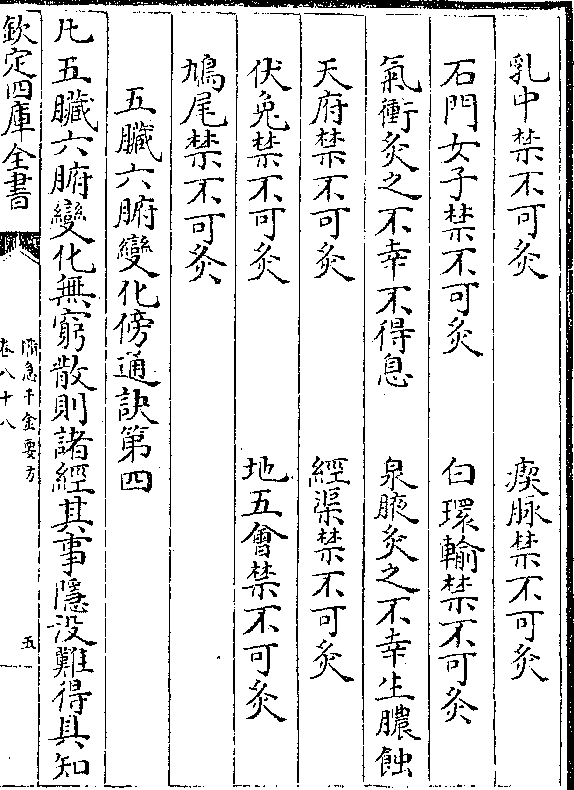 乳中禁不可灸　瘈脉禁不可灸
石門女子禁不可灸　白環輸禁不可灸
氣衝灸之不幸不得息　泉腋灸之不幸生膿蝕
天府禁不可灸　經渠禁不可灸
伏兔禁不可灸　地五會禁不可灸
鳩尾禁不可灸
五臟六腑變化傍通訣第四
凡五臟六腑變化無窮散則諸經其事隱没難得具知
欽定四庫全書
備急千金要方
卷八十八
五